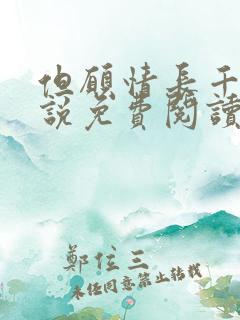 但願情長干
說免費閱讀
鄭位三
未經同意禁止轉載